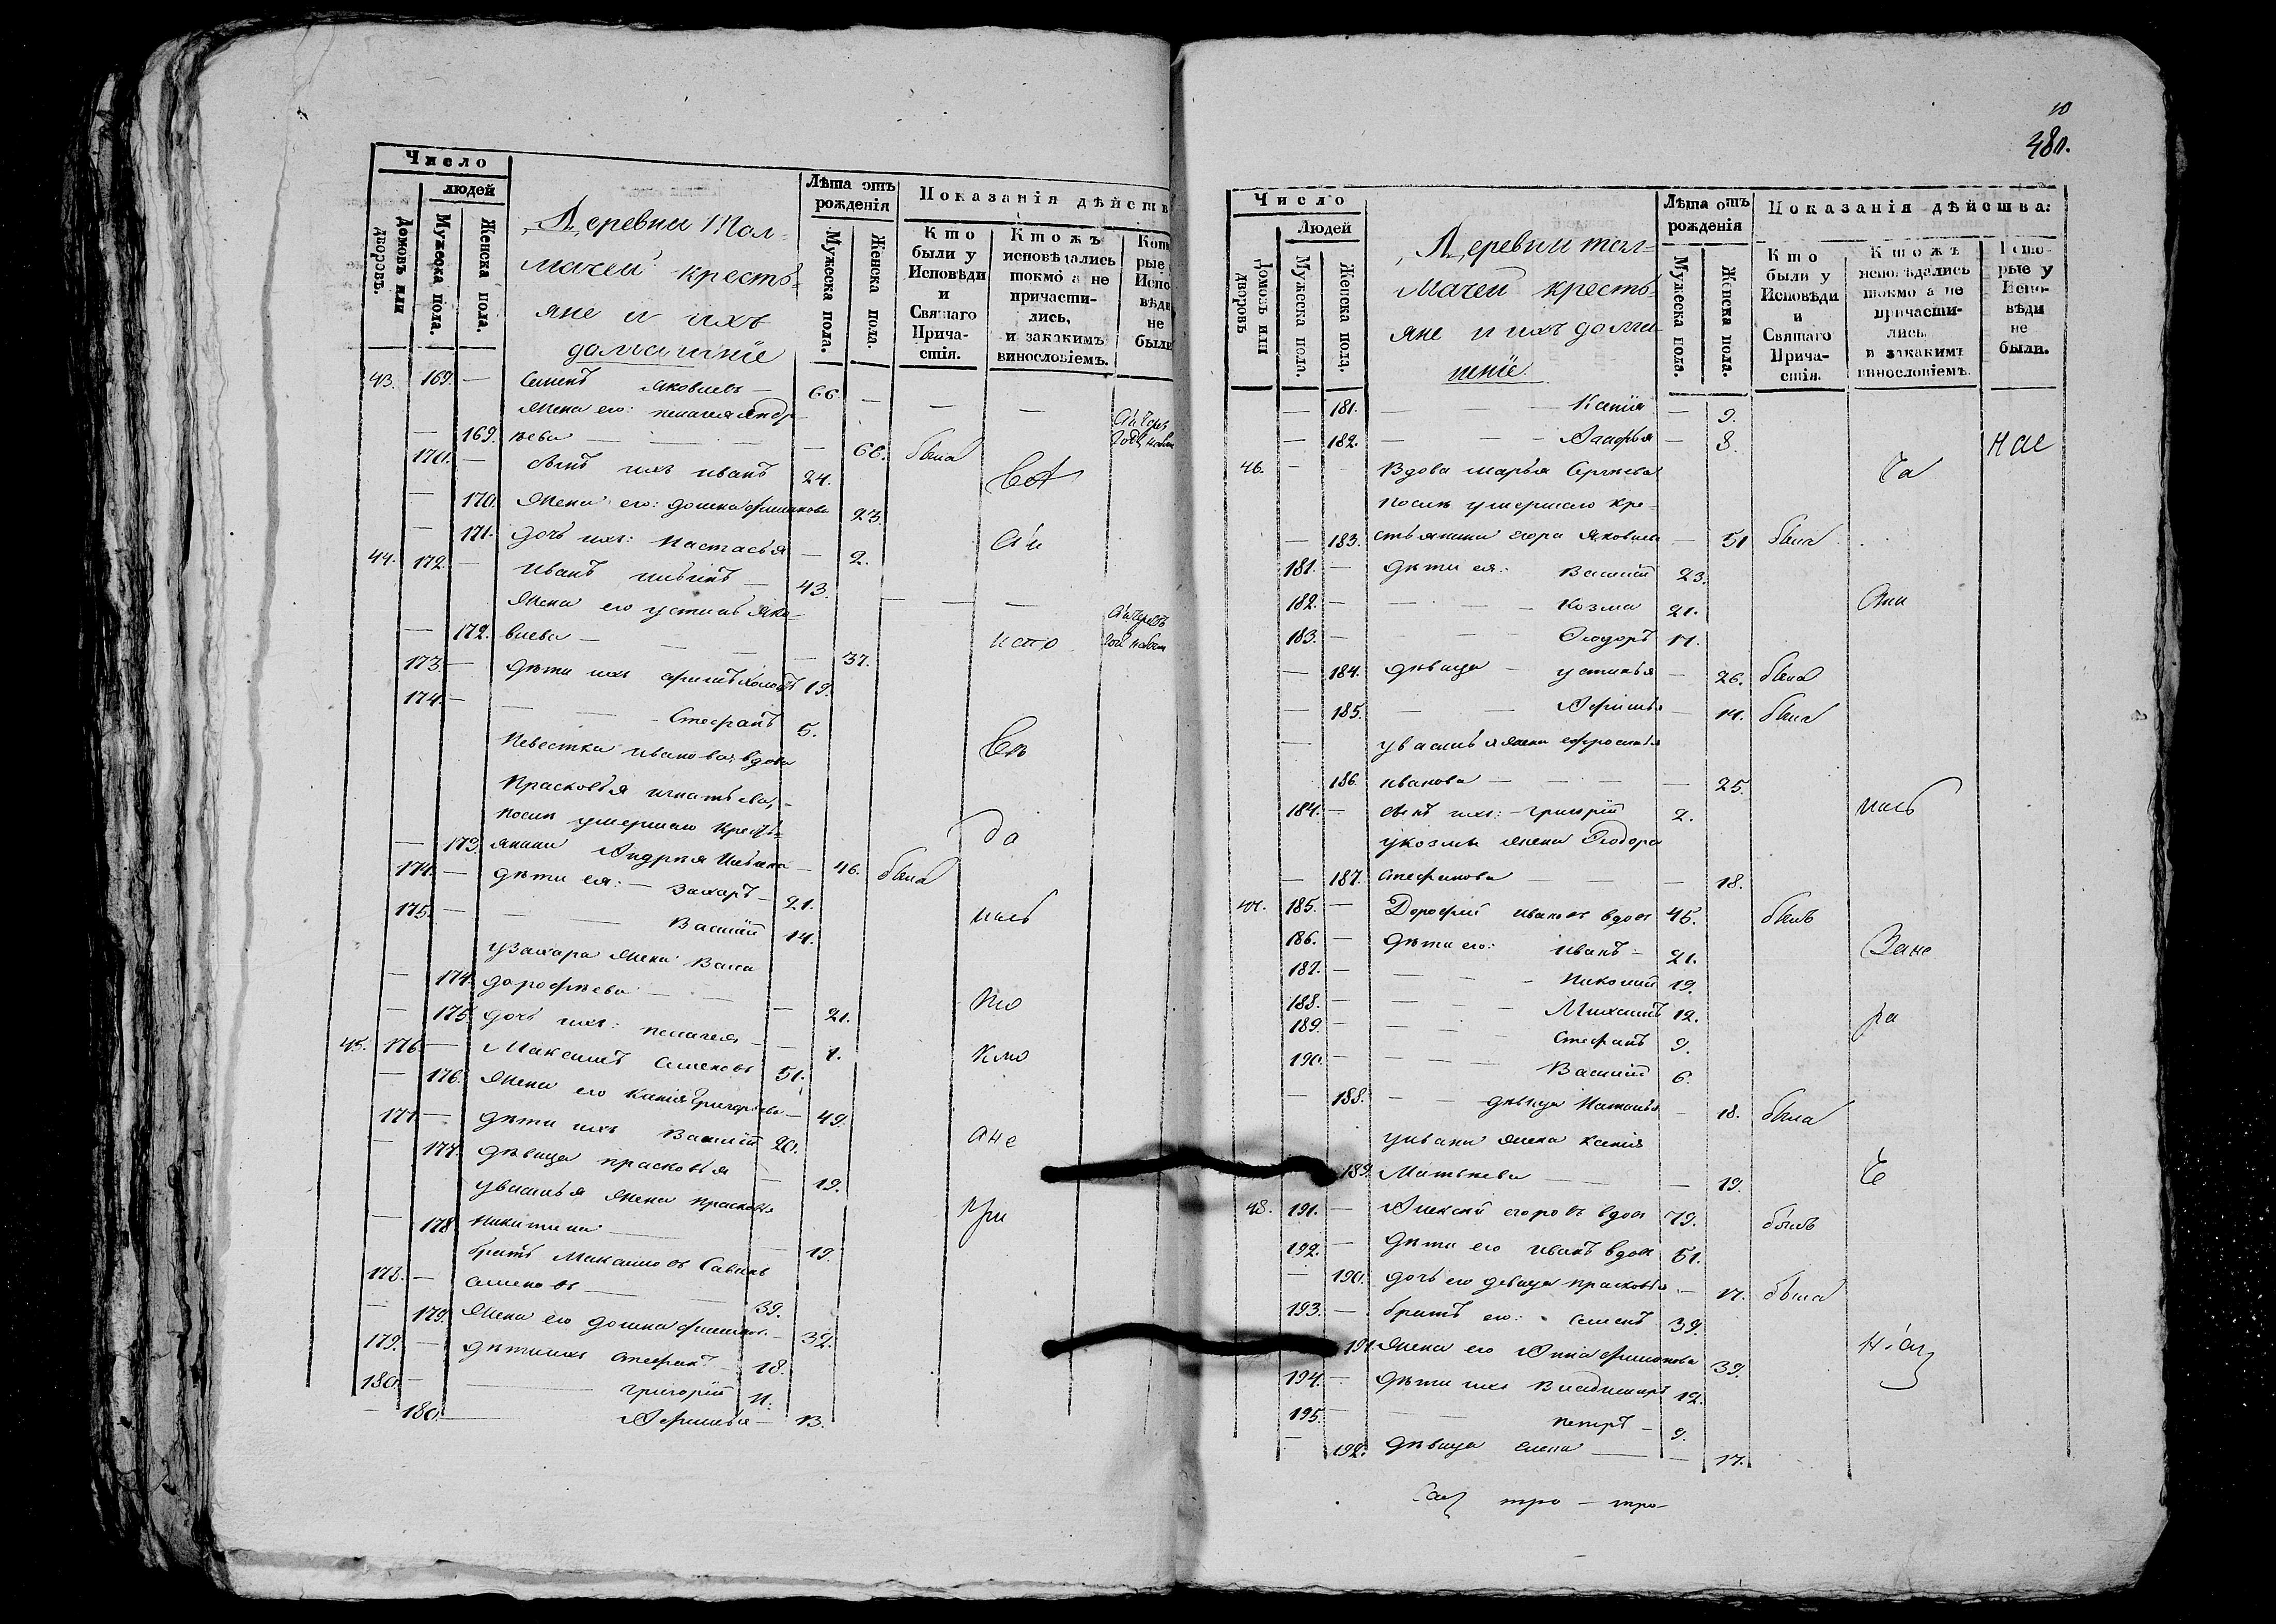 Число
людей
Домовъ или дворовъ.
Мужеска пола.
Женска пола.
Деревни Тол-
мачей кресть-
яне и ихъ
домашніе
Лѣта отъ
рожденія
Мужеска пола.
Женска пола.
Показанія дѣйств
Кто
были у
Исповѣди
и
Святаго
Прича-
стія.
Ктожъ
исповѣдались
токмо а не
причасти-
лись,
и закакимъ
винословіемъ.
Кот
рые
Испо
вѣди
не
были
43. 169. — Семенъ Яковлевъ — 66. — — —
Жена его: пелагея Андр-
— 169. ѣева — — — — 66. была
170. — сынъ ихъ иванъ 24.
— 170. Жена его: домна филипова 23.
— 171. дочь ихъ: Настасья — 2.
44. 172. — Иванъ 43. — — —
Жена его устинья Яко-
— 172. влева — — — — 37. испо
173. — дѣти ихъ 19.
174. — — — Стефанъ 5.
Невестка иванова вдова
Прасковья игнатьева,
послѣ умершаго кресть- да
— 173. янина Андрея — 46. была
174. — дѣти ея: — Захаръ — 21.
175. — — — Василій 14. лись
у Захара жена Васса
— 174. дорофѣева — — — 21. но
— 175. дочь ихъ: пелагея — — 1.
45. 176. — Максимъ Семеновъ 51. кмо
— 176. Жена его Ксенія Григорьева — 49.
177. — дѣти ихъ Василій 20. а не
— 177. дѣвица прасковья — 19.
у василья жена прасковья при
— 178. никитина — — 19.
братъ Максимовъ Савелъ
178. — семеновъ — — 39.
— 179. Жена его домна — 32.
179. — дѣти ихъ Стефанъ — 18.
180. — — Григорій 11.
— 180. — Афимья — 13.
10
480.
Число
Людей
Домовъ или дворовъ
Мужеска пола.
Женска пола.
Деревни тол-
мачей кресть-
яне и ихъ домаш
шніе
Лѣта отъ
рожденія
Мужеска пола.
Женска пола.
Показанія дѣйства:
Кто
были у
Исповѣди
и
Святаго
Прича-
стія.
Ктожъ
исповѣдались
токмо а не
причасти-
лись.
и закакимъ
винословіемъ.
Кото-
рые у
Испо-
вѣди
не
были.
— 181. — Ксенія — 9.
— 182. — — — Агафья — 8.
46. — Вдова марья Сергѣева
послѣ умершаго кре-
— 183. стьянина егора Яковлева — 51 была
181. — дѣти ея: Василій 23.
182. — — — — Козма 21.
183. — — — Ѳеодоръ 17.
— 184. дѣвица — устинья — 26. была
— 185. — — Афимья — 14. была
— у василья жена ефросинья
186. иванова — — — — 25.
184. — сынъ ихъ: — григорій 2. лись
у козмы жена Ѳеодора
— 187. Стефанова — — — 18.
47. 185. — Дорофей ивановъ вдовъ 45. былъ
186. — дѣти его: иванъ — 21.
187. — — — Николай 19.
188. — — — Михаилъ 12. ра
189. — — — Стефанъ 9.
190. — — — Василій 6.
— 188. — — дѣвица Наталья — 18. была
у ивана жена Ксенія
189. Матвѣева — — — 19.
48. 191. — Алексѣй егоровъ вдовъ 79. былъ
192. — Дѣти его иванъ вдовъ 51.
— 190. дочь его девица прасковья — 17. была
193. — братъ его: семенъ 39.
191. Жена его Анна филипова 39.
194. — дѣти ихъ Владимиръ 12.
195. — — петръ — 9.
— 192. дѣвица елена — — 17.